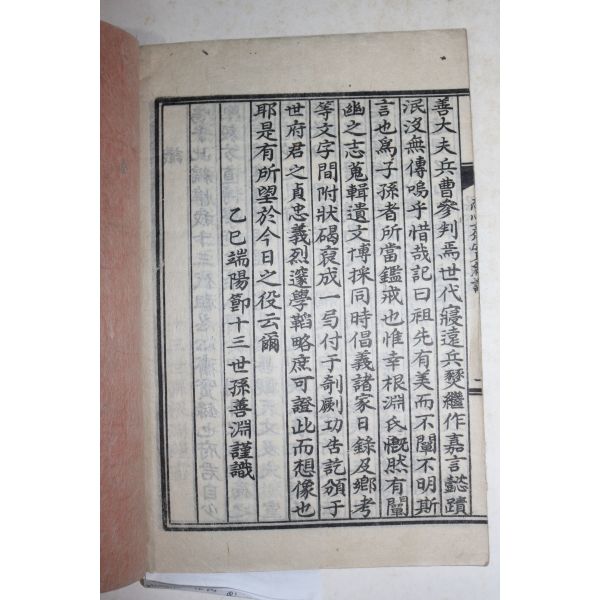 善大夫兵曹參判焉世代寢遠兵燹繼作嘉言懿蹟
泯沒無傳嗚乎惜哉記曰祖先有美而不闡不明斯
言也爲子孫者所當鑑戒也惟幸根淵氏慨然有闡
幽之志蒐輯遺文博採同時倡義諸家日錄及鄕考
等文字間附狀碣裒成一局付于剞劂功告訖頒于
世府君之貞忠義烈邃學韜略庶可證此而想像也
耶是有所望於今日之役云爾
乙巳端陽節十三世孫善淵謹識